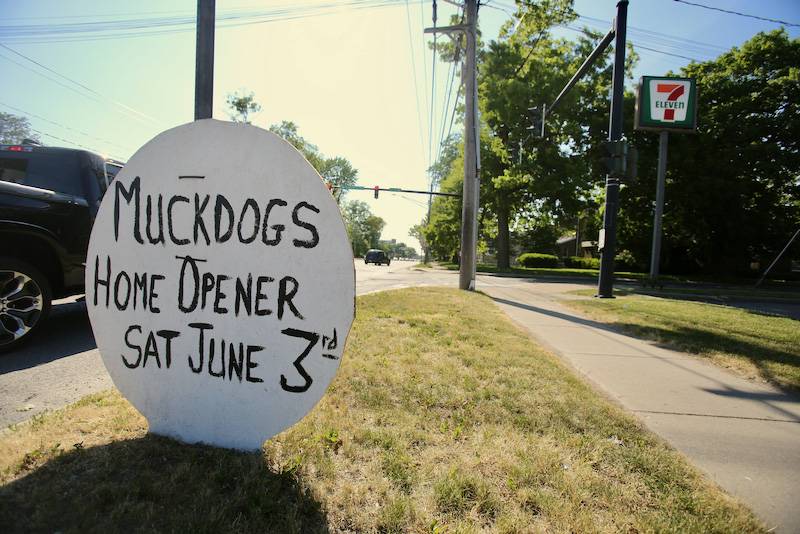 MUCKDOGS
HOME OPENER
SAT JUNE 3rd
7
ELEVEN